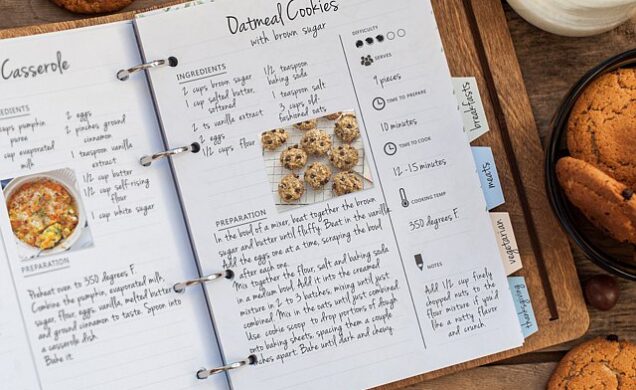 Casserole
EDIENTS
cups pumpkin
puree
cup evaporated
milk
2 eggs
2 pinches ground
cinnamon
1 teaspoon vanilla
extract
1/2 cup butter
1/2 cup self-rising
flour
1 cup white sugar
PREPARATION
Preheat oven to 350 degrees F.
Combine the pumpkin, evaporated milk,
sugar, flour, eggs, vanilla, melted butter
and ground cinnamon to taste. Spoon into
a casserole dish.
Bake it.
Oatmeal Cookies
with brown sugar
INGREDIENTS
2 cups brown sugar
1 cup salted butter,
softened
2 ts vanilla extract
2 eggs
1 1/2 cups flour
1/2 teaspoon
baking soda
1 teaspoon salt
3 cups old-
fashioned oats
PREPARATION
In the bowl of a mixer, beat together the brown
sugar and butter until fluffy. Beat in the vanilla.
Add the eggs one at a time, scraping the bowl
after each one.
Mix together the flour, salt and baking soda
in a medium bowl. Add it into the creamed
mixture in 2 to 3 batches, mixing until just
combined. Mix in the oats until just combined.
Use cookie scoop to drop portions of dough
onto baking sheets, spacing them a couple
inches apart. Bake until dark and chewy.
DIFFICULTY
SERVES
9 pieces
TIME TO PREPARE
10 minutes
TIME TO COOK
12-15 minutes
COOKING TEMP
350 degrees F
NOTES
Add 1/2 cup finely
chopped nuts to the
flour mixture if you'd
like a nutty flavor
and crunch.
breakfasts
meats
vegetarian
thanksgiving